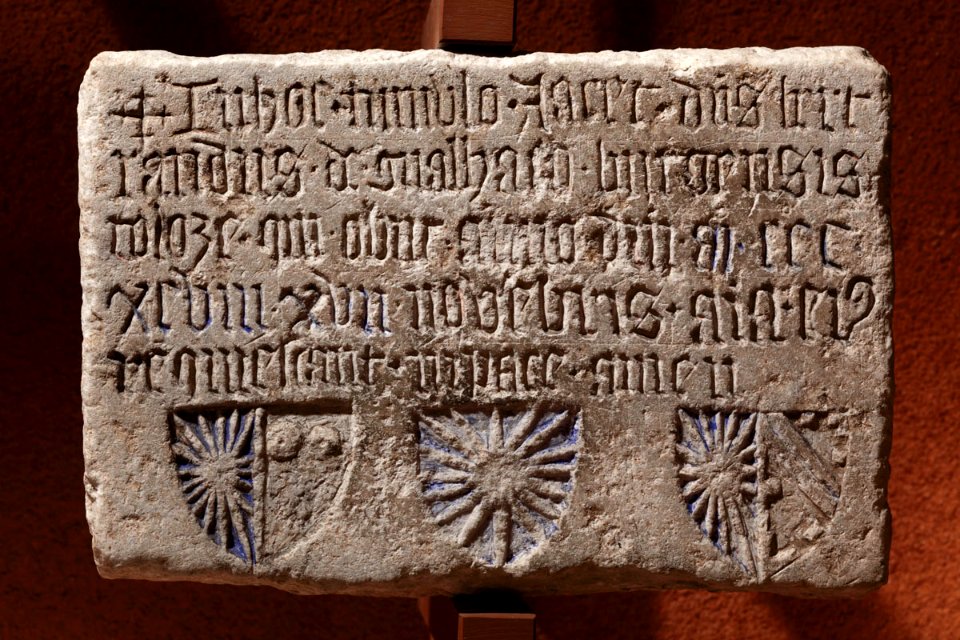 ✠ In hoc tumulo Jacet dns bert
randus de gualhaco burgensis
tholoze qui obiit anno dni m ccc
xcviii xvii novebris aia eiꝰ
requiescant in pace amen